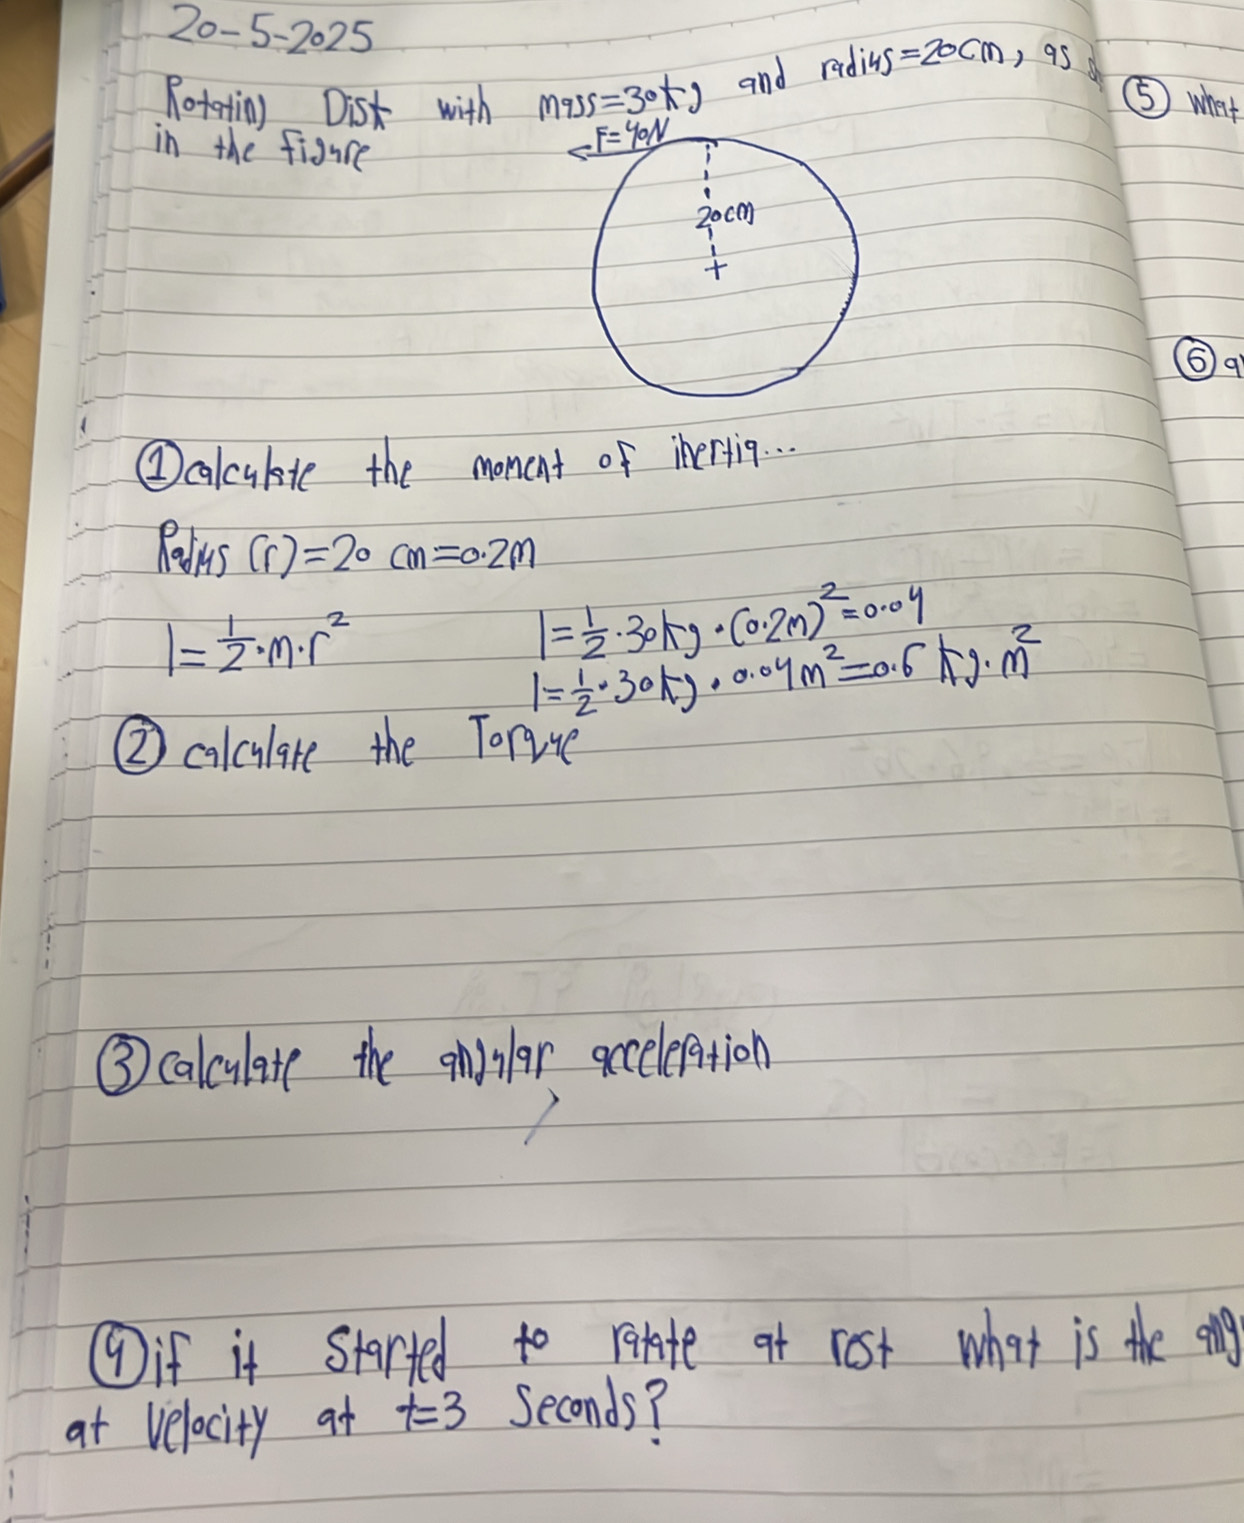 20-5-2025
Rotating Disk with mass=30kg and radius=20cm, as
in the figure
F=40N
20cm
+
① calculate the moment of inertia...
Radius (r)=20 cm=0.2m
I=1/2·m·r²
I=1/2·30kg·(0.2m)²=0.04
I=1/2·30kg·0.04m²=0.6 kg·m²
② calculate the Torque
③ calculate the angular acceleration
④ if it started to ratate at rest what is the ang
at velocity at t=3 seconds?
⑤ what
⑥ a